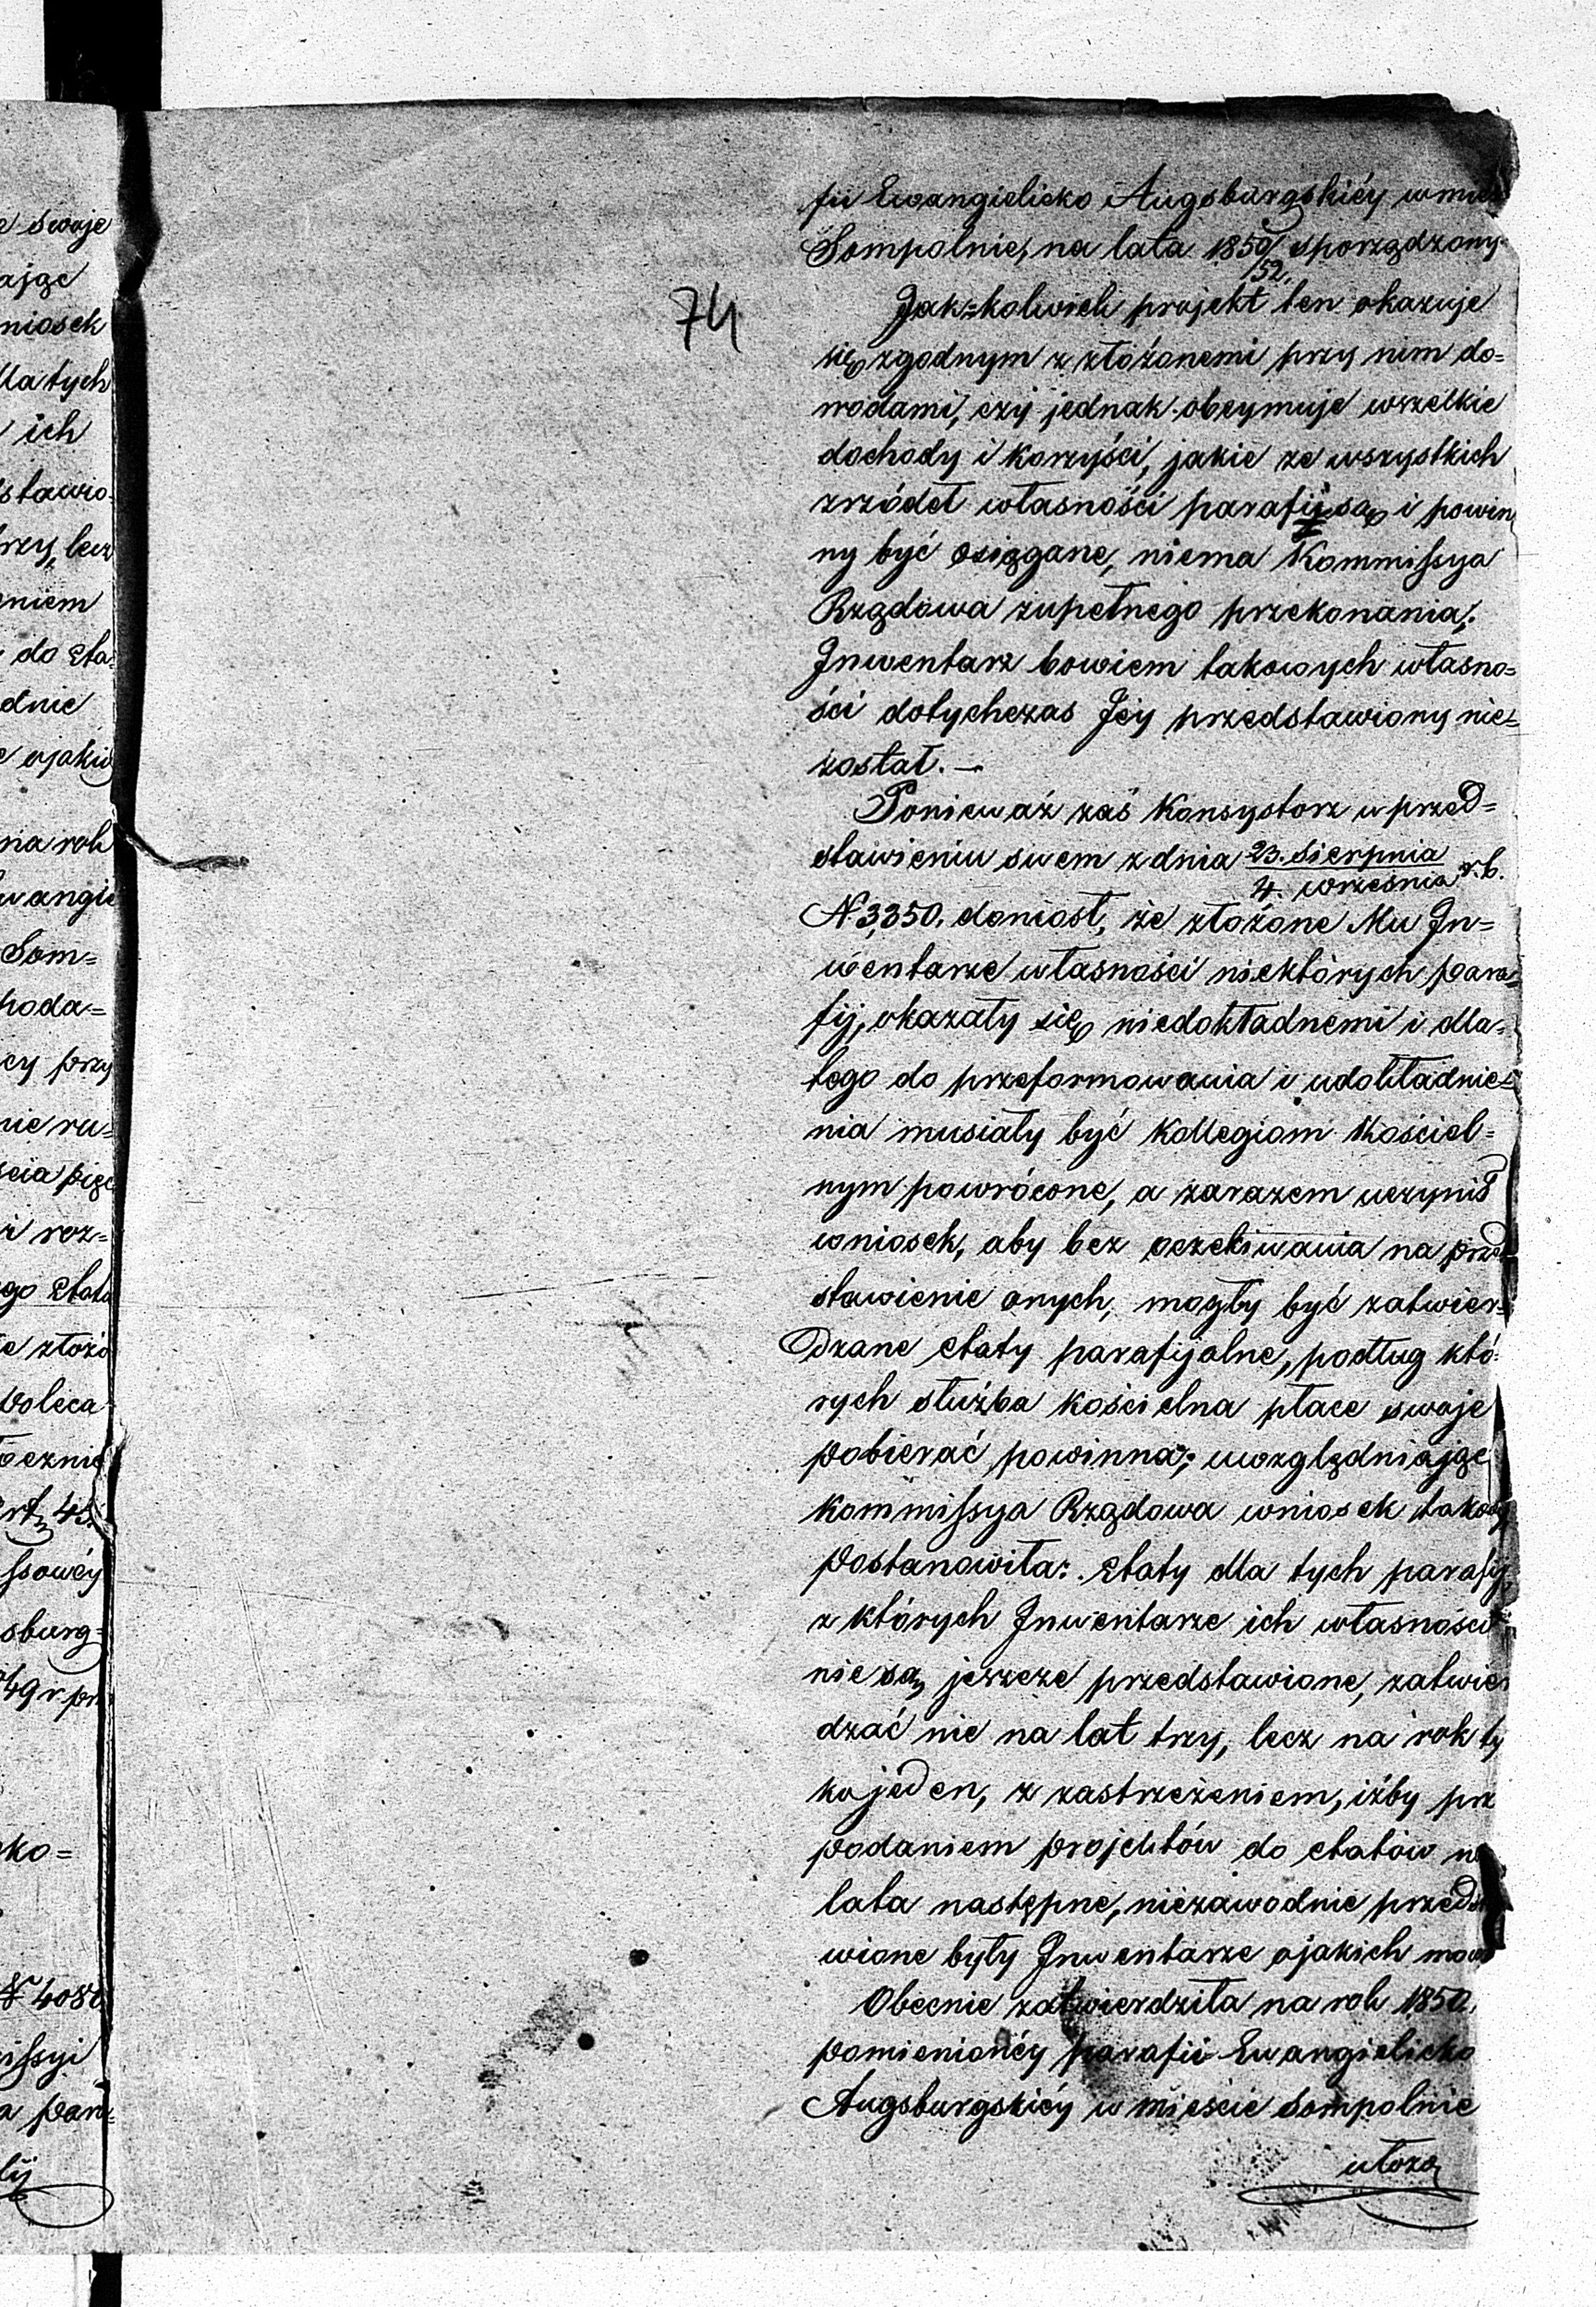 e swoje
ając
niosek
dla tych
ich
stawio-
rzy, lecz
niem
do Eta-
dnie
e o jakiej
na rok
wangie
Som=
poda=
cy przy
nie ru=
scia pięć
i roz=
go Etatu
e złożo
poleca
ecznie
art. 45.
ssowéj
sburg=
49 r. prz
ko=
N 4080
issyi
a para
74
fii Ewangielicko Augsburgskiéy w mie
Sompolnie, na lata 1850/52, sporządzony.
Jak=kolwiek projekt ten okazuje
się zgodnym z złożonemi przy nim do=
wodami, czy jednak obeymuje wszelkie
dochody i korzyści, jakie ze wszystkich
zrzódeł własności parafii są i powin
ny być osiągane, niema Kommissya
Rządowa zupełnego przekonania;
Inwentarz bowiem takowych własno=
ści dotychczas Jéy przedstawiony nie=
został. —
Ponieważ zaś Konsystorz w przed=
stawieniu swem z dnia 23. Sierpnia / 4. Września r.b.
N 3,350. doniosł, że złożone Mu In=
wentarze własności niektórych para=
fij, okazały się niedokładnemi i dla=
tego do przeformowania i udokładnie=
nia musiały być Kollegiom Kościel=
nym powrócone, a zarazem uczynił
wniosek, aby bez oczekiwania na przed
stawienie onych, mogły być zatwier=
dzane etaty parafijalne, podług któ=
rych służba kościelna płace swoje
pobierać powinna; uwzględniając
Kommissya Rządowa wniosek takowy
postanowiła: Etaty dla tych parafij,
z których Inwentarze ich własności
nie są jeszcze przedstawione, zatwier
dzać nie na lat trzy, lecz na rok ty
ko jeden, z zastrzeżeniem, iżby prz
podaniem projektów do etatów na
lata następne, niezawodnie przedsta
wione były Inwentarze o jakich mowa
Obecnie zatwierdziła na rok 1850.
pomienionéy parafii Ewangielicko
Augsburgskiéy w mieście Sompolnie
ułożo